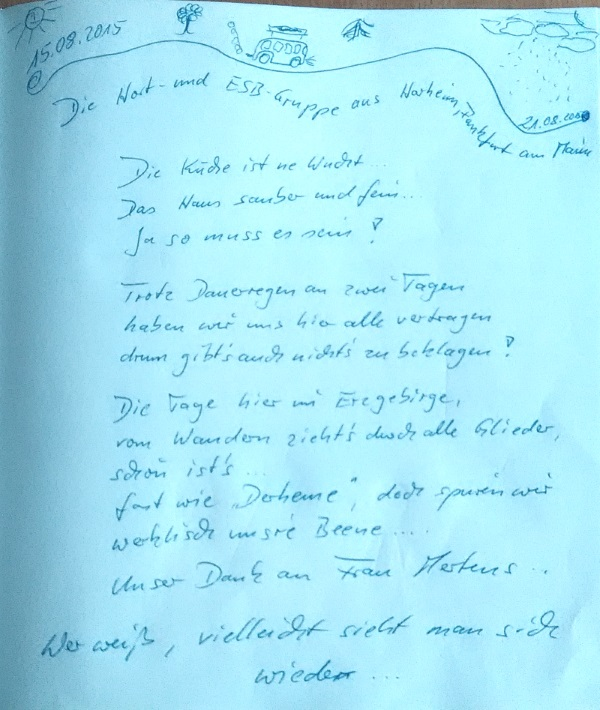 15.08.2015
Die Hort- und ESB-Gruppe aus Harheim, Frankfurt am Main
21.08.2015
Die Küche ist ne Wucht...
Das Haus sauber und fein...
Ja so muss es sein!
Trotz Dauerregen an zwei Tagen
haben wir uns hier alle vertragen
drum gibt's auch nichts zu beklagen!
Die Tage hier im Erzgebirge,
vom Wandern zieht's durch alle Glieder,
schön ist's...
fast wie „Derheme", doch spüren wir
werklisch unsre Beene....
Unser Dank an Frau Mertens...
Wer weiß, vielleicht sieht man sich
wieder...